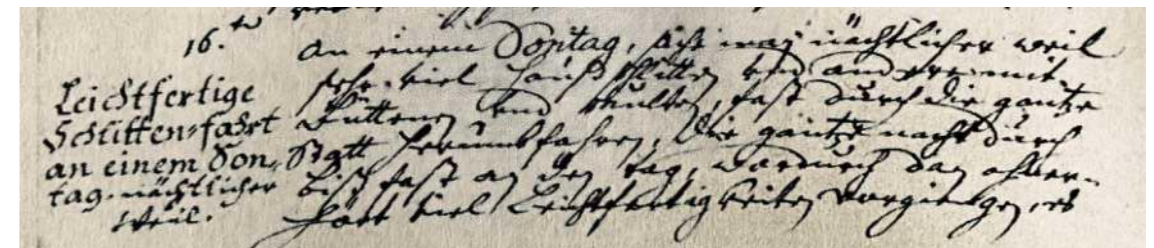 16.te
Leichtfertige
Schlitten-fahrt
an einem Son„
tag. nächtlicher
Weil.
an einem Sontag, sahe man nächtlicher weil
sehr viel hauß schlitten vnd andere mit
Küttenen vnd Mulden, fast durch die gantze
Statt herumbfahren, die gantze nacht durch
biß fast an den tag, wardurch dan ohner„
hört viel Leichtfertigkeiten vorgiengen, es